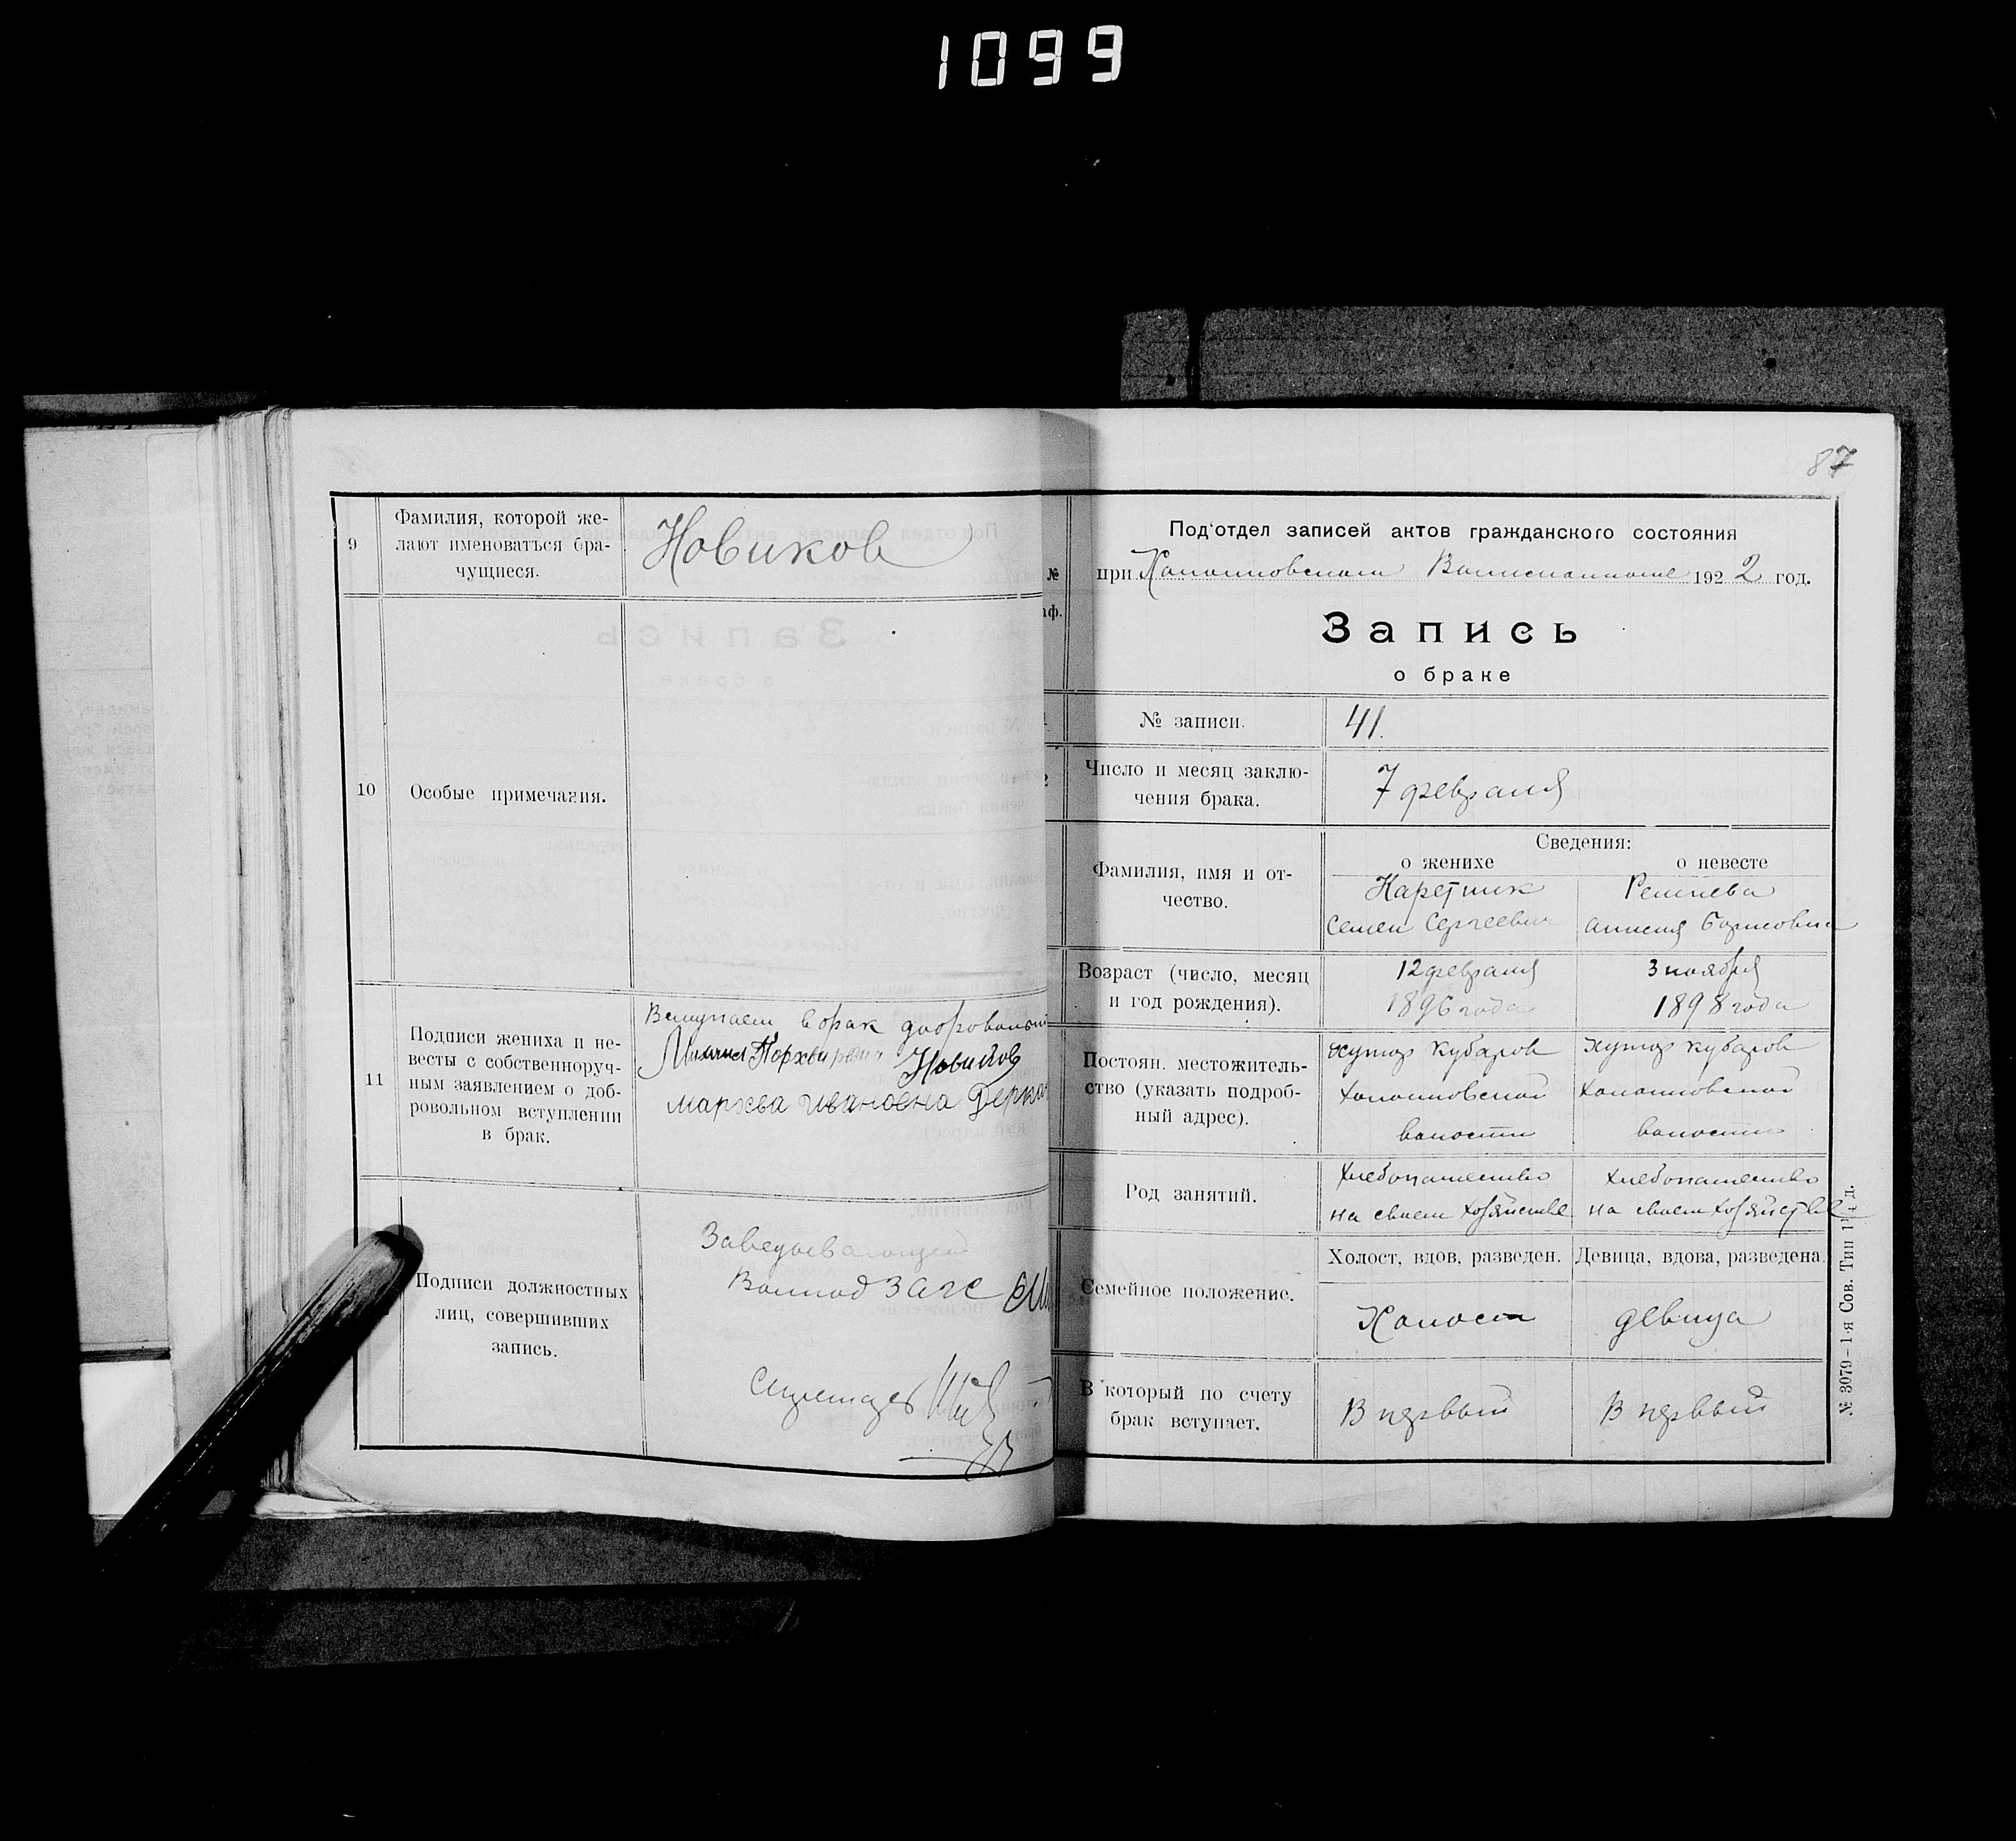 1099
9
Фамилия, которой же-
лают именоваться бра-
чущиеся.
Новиков
10
Особые примечания.
11
Подписи жениха и не-
весты с собственноруч-
ным заявлением о доб-
ровольном вступлении
в брак.
Вступаем в брак добровольно
Новиков
Мархва Ивановна Дерка
Подписи должностных
лиц, совершивших
запись.
Заведывающий
Волпод Загс
Секретарь
87
Под'отдел записей актов гражданского состояния
№
при Хопошовском Волисполкоме 1922 год.
аф.
Запись
о браке
№ записи.
41.
2
Число и месяц заклю-
чения брака.
7 февраля
Фамилия, имя и от-
чество.
Сведения:
о женихе
о невесте
Семен Сергеевич
Борисовна
Возраст (число, месяц
и год рождения).
12 февраля
1896 года
3 ноября
1898 года
Постоян. местожитель-
ство (указать подроб-
ный адрес).
хутор Кубаров
волости
хутор Кубаров
волости
Род занятий.
Хлебопашество
на своем хозяйстве
Хлебопашество
на своем хозяйстве
Семейное положение.
Холост, вдов, разведен.
Девица, вдова, разведена.
Холост
девица
В который по счету
брак вступает.
В первый
В первый
№ 3079–1-я Сов. Тип 1 д.